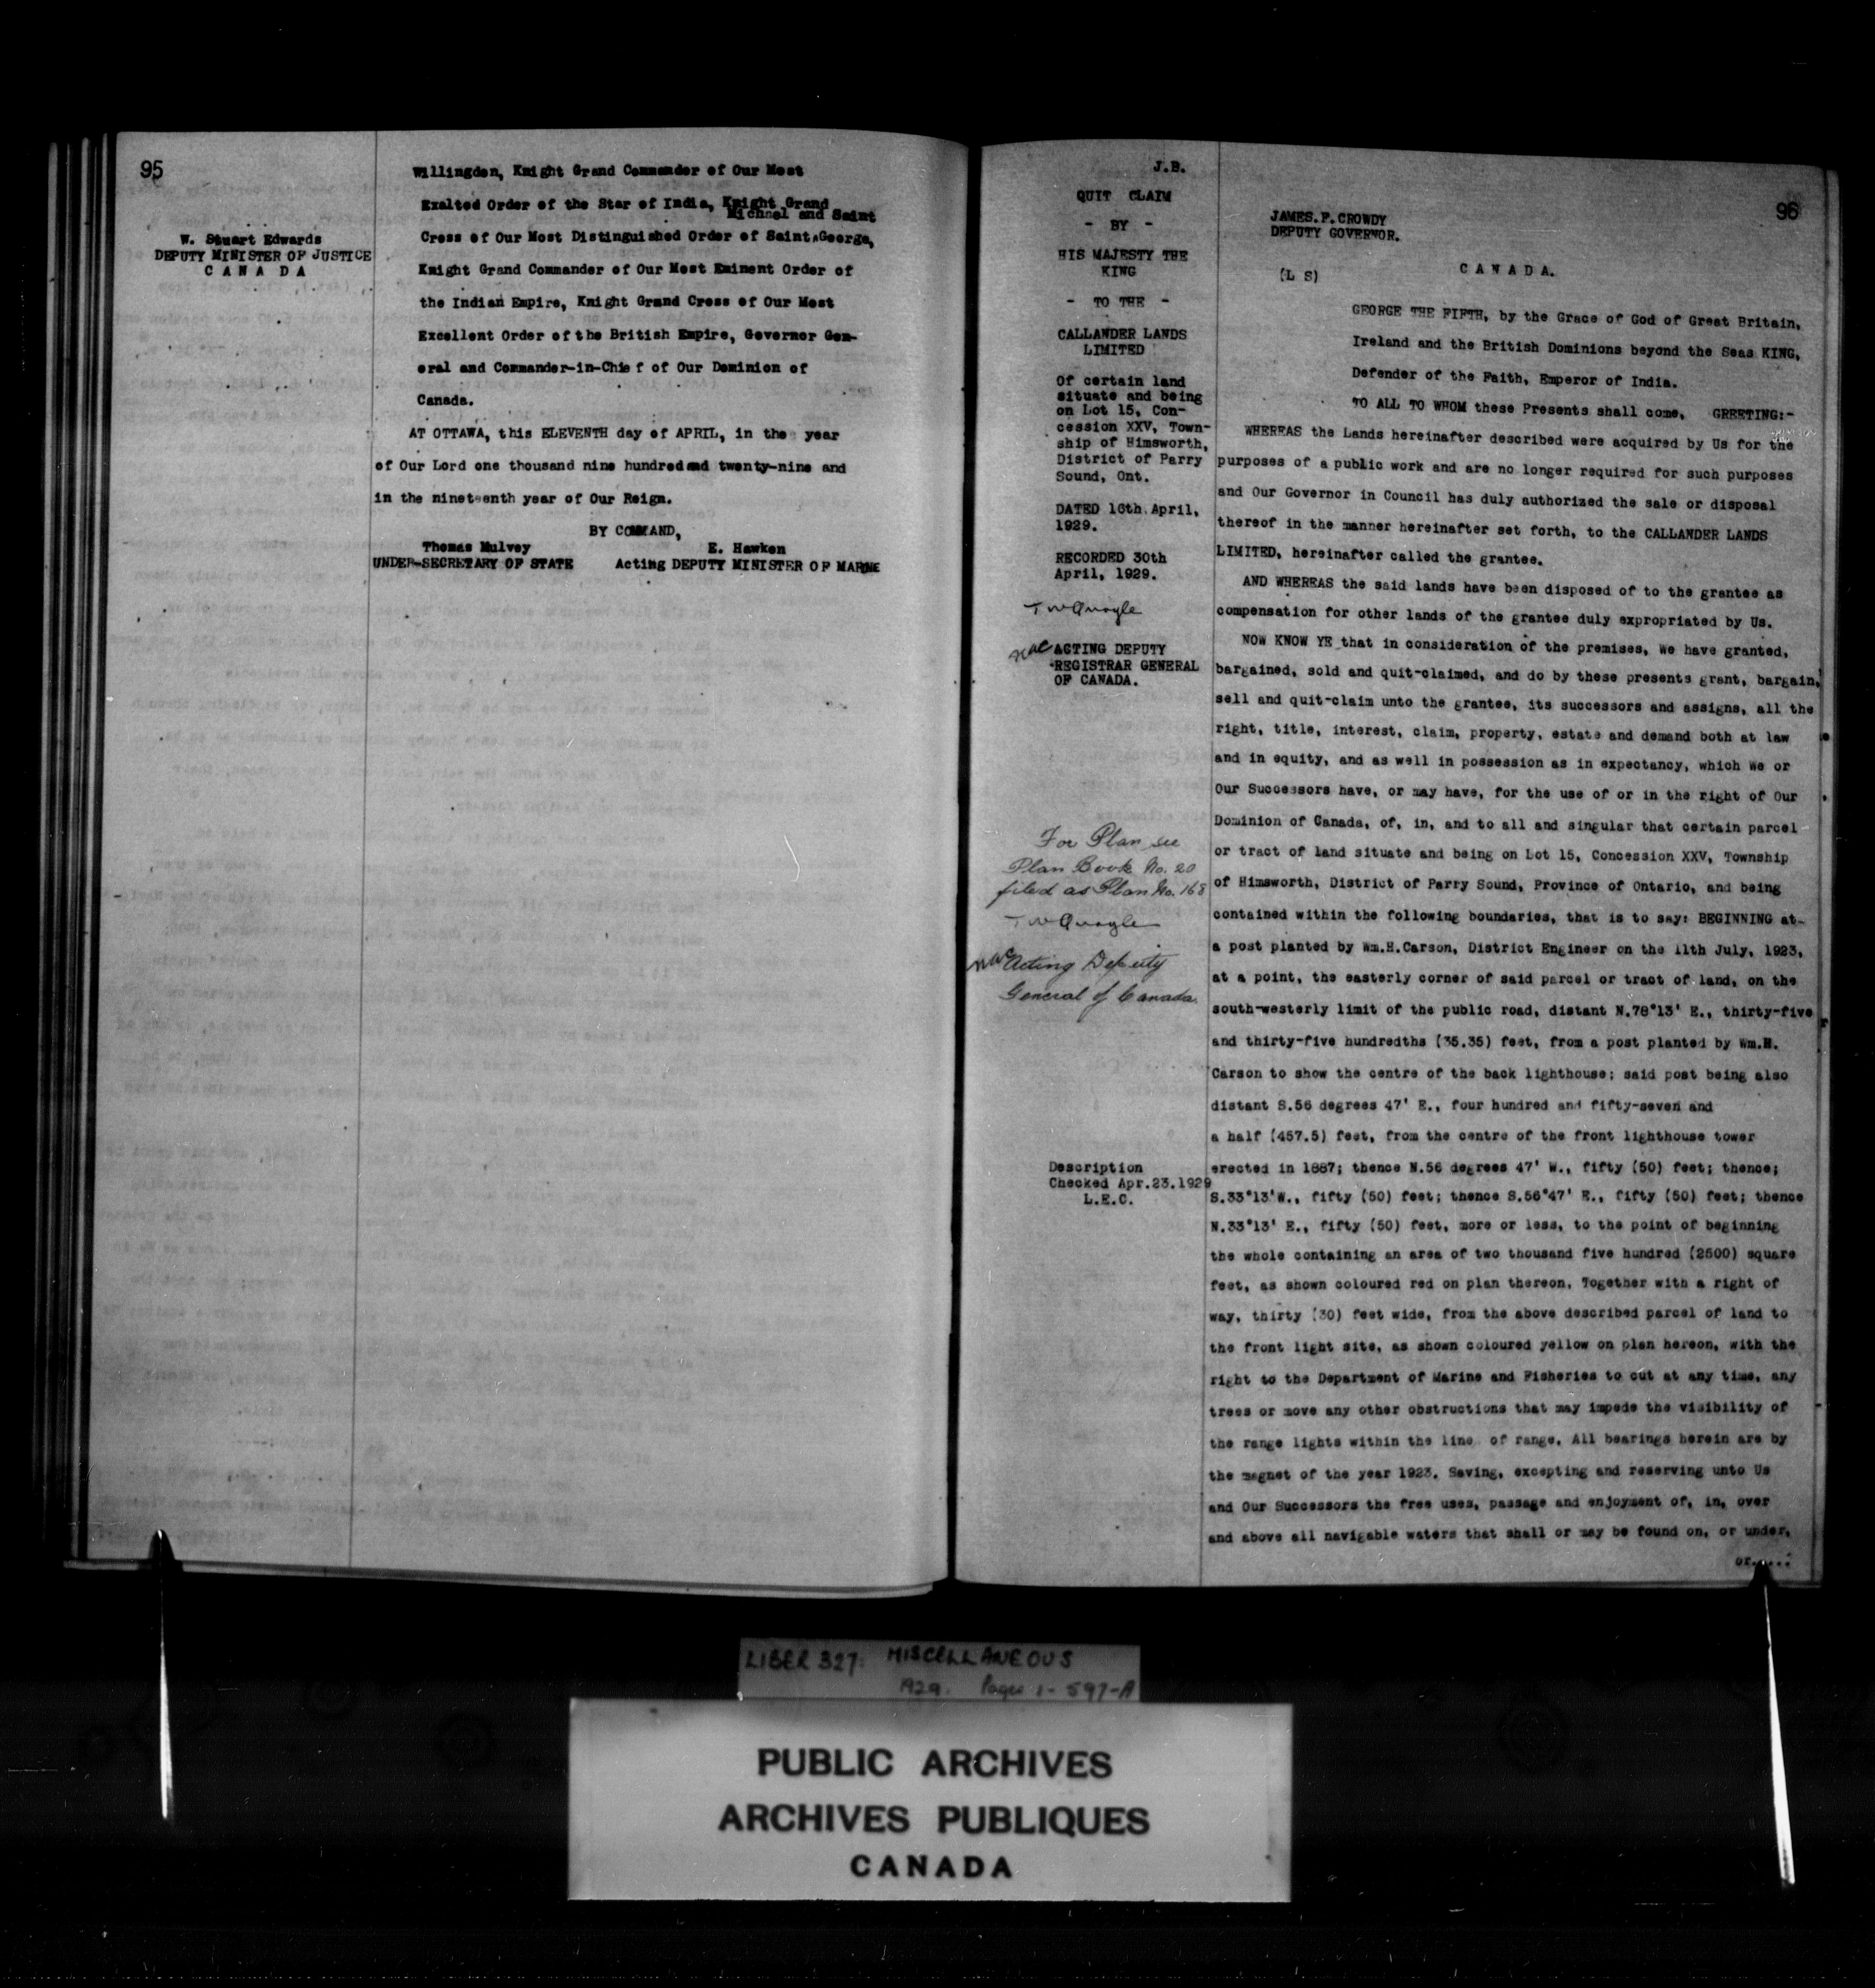 95
W. Stuart Edwards
DEPUTY MINISTER OF JUSTICE
C A N A D A
Willingdon, Knight Grand Commander of Our Most
Exalted Order of the Star of India, Knight Grand
Michael and Saint
Cross of Our Most Distinguished Order of Saint^George,
Knight Grand Commander of Our Most Eminent Order of
the Indian Empire, Knight Grand Cross of Our Most
Excellent Order of the British Empire, Governor Gen-
eral and Commander-in-Chief of Our Dominion of
Canada.
AT OTTAWA, this ELEVENTH day of APRIL, in the year
of Our Lord one thousand nine hundred and twenty-nine and
in the nineteenth year of Our Reign.
BY COMMAND,
Thomas Mulvey
E. Hawken
UNDER-SECRETARY OF STATE
Acting DEPUTY MINISTER OF MARINE
J.B.
QUIT CLAIM
- BY -
HIS MAJESTY THE
KING
- TO THE -
CALLANDER LANDS
LIMITED
Of certain land
situate and being
on Lot 15, Con-
cession XXV, Town-
ship of Himsworth,
District of Parry
Sound, Ont.
DATED 16th April,
1929.
RECORDED 30th
April, 1929.
ACTING DEPUTY
REGISTRAR GENERAL
OF CANADA.
For Plan see
Plan Book No. 20
filed as Plan No. 168
Acting Deputy
General of Canada.
Description
Checked Apr.23.1929
L.E.C.
96
JAMES.F.CROWDY
DEPUTY GOVERNOR.
(L S)
C A N A D A.
GEORGE THE FIFTH, by the Grace of God of Great Britain,
Ireland and the British Dominions beyond the Seas KING,
Defender of the Faith, Emperor of India.
TO ALL TO WHOM these Presents shall come, GREETING:-
WHEREAS the Lands hereinafter described were acquired by Us for the
purposes of a public work and are no longer required for such purposes
and Our Governor in Council has duly authorized the sale or disposal
thereof in the manner hereinafter set forth, to the CALLANDER LANDS
LIMITED, hereinafter called the grantee.
AND WHEREAS the said lands have been disposed of to the grantee as
compensation for other lands of the grantee duly expropriated by Us.
NOW KNOW YE that in consideration of the premises, We have granted,
bargained, sold and quit-claimed, and do by these presents grant, bargain,
sell and quit-claim unto the grantee, its successors and assigns, all the
right, title, interest, claim, property, estate and demand both at law
and in equity, and as well in possession as in expectancy, which We or
Our Successors have, or may have, for the use of or in the right of Our
Dominion of Canada, of, in, and to all and singular that certain parcel
or tract of land situate and being on Lot 15, Concession XXV, Township
of Himsworth, District of Parry Sound, Province of Ontario, and being
contained within the following boundaries, that is to say: BEGINNING at
a post planted by Wm.H.Carson, District Engineer on the 11th July, 1923,
at a point, the easterly corner of said parcel or tract of land, on the
south-westerly limit of the public road, distant N.78°13' E., thirty-five
and thirty-five hundredths (35.35) feet, from a post planted by Wm.H.
Carson to show the centre of the back lighthouse; said post being also
distant S.56 degrees 47' E., four hundred and fifty-seven and
a half (457.5) feet, from the centre of the front lighthouse tower
erected in 1887; thence N.56 degrees 47' W., fifty (50) feet; thence;
S.33°13'W., fifty (50) feet; thence S.56°47' E., fifty (50) feet; thence
N.33°13' E., fifty (50) feet, more or less, to the point of beginning
the whole containing an area of two thousand five hundred (2500) square
feet, as shown coloured red on plan thereon. Together with a right of
way, thirty (30) feet wide, from the above described parcel of land to
the front light site, as shown coloured yellow on plan hereon, with the
right to the Department of Marine and Fisheries to cut at any time, any
trees or move any other obstructions that may impede the visibility of
the range lights within the line of range. All bearings herein are by
the magnet of the year 1923. Saving, excepting and reserving unto Us
and Our Successors the free uses, passage and enjoyment of, in, over
and above all navigable waters that shall or may be found on, or under,
or.....
LIBER 327. MISCELLANEOUS
1929. Pages 1-597-A
PUBLIC ARCHIVES
ARCHIVES PUBLIQUES
CANADA